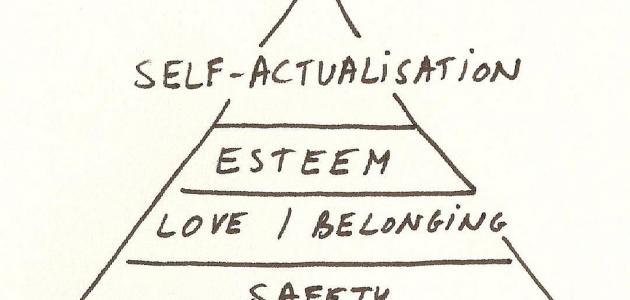 SELF-ACTUALiSATiON
ESTEEM
LOVE / BELONGiNG
SAFETY